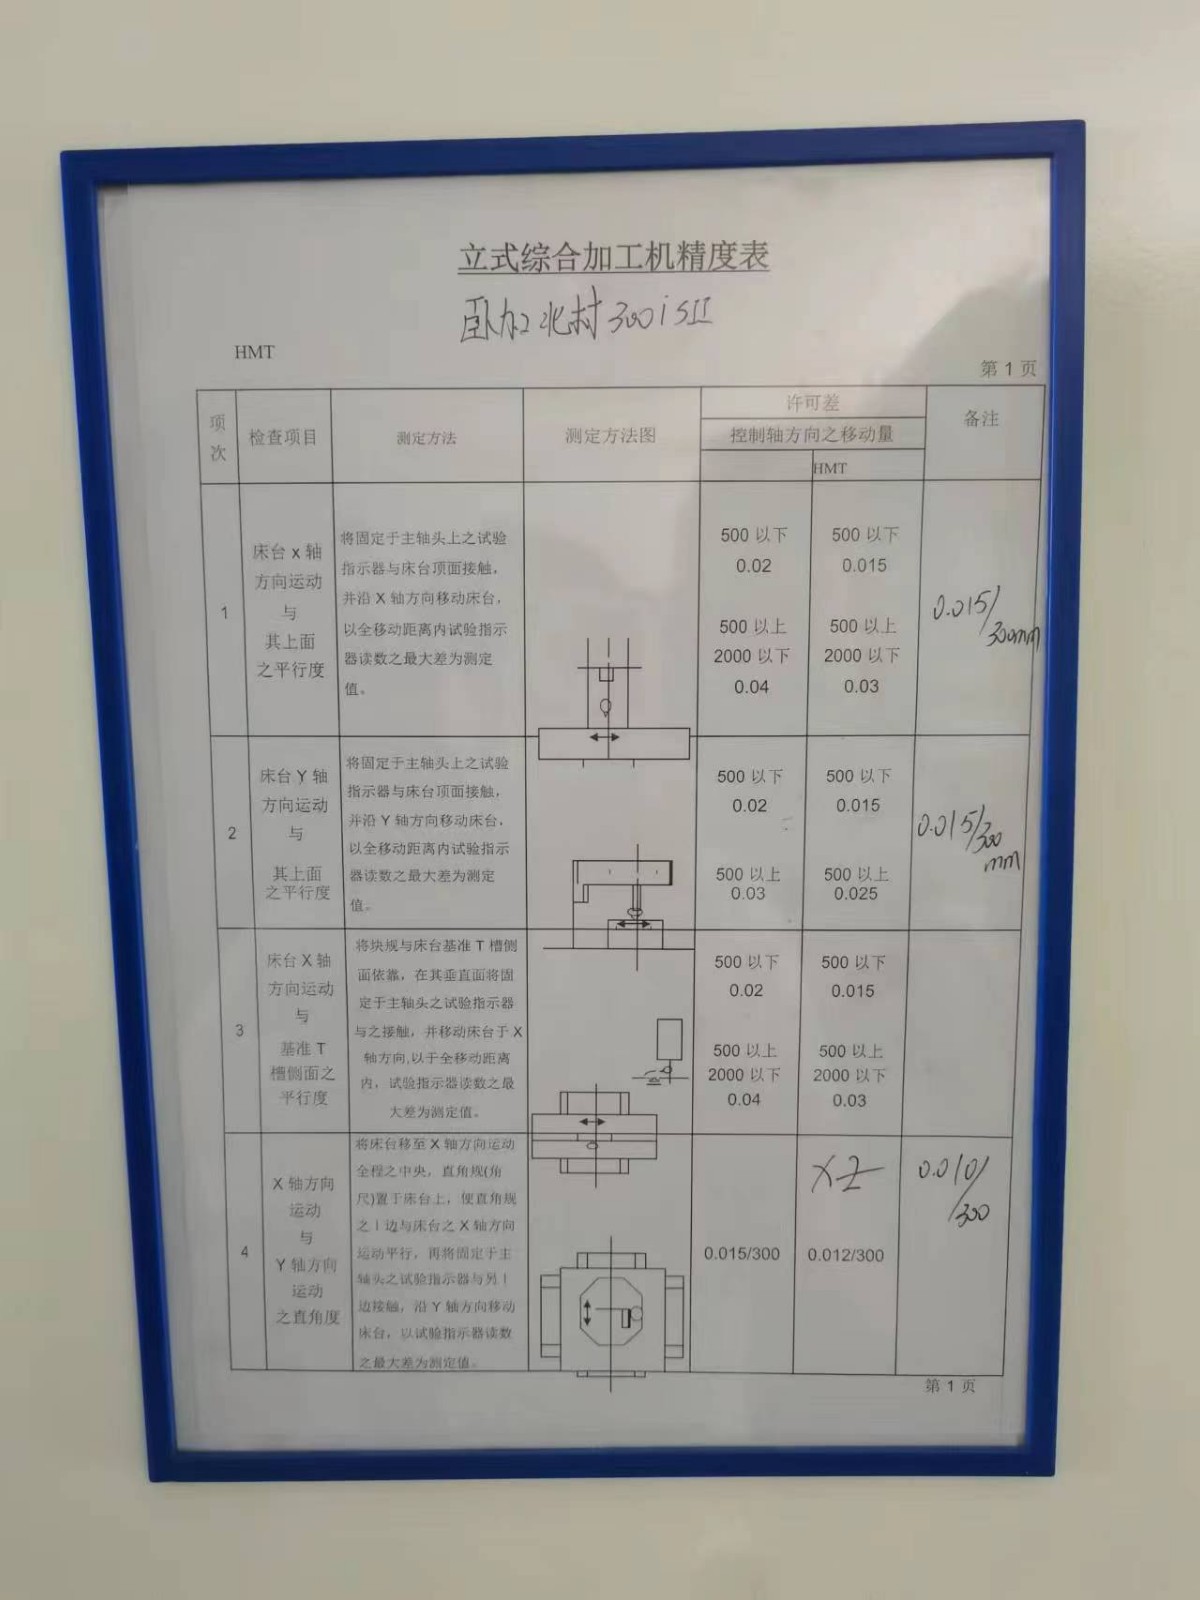 立式综合加工机精度表
卧加北村300iSII
HMT
第 1 页
项次
检查项目
测定方法
测定方法图
许可差
控制轴方向之移动量
HMT
备注
1
床台 x 轴
方向运动
与
其上面
之平行度
将固定于主轴头上之试验
指示器与床台顶面接触，
并沿 X 轴方向移动床台，
以全移动距离内试验指示
器读数之最大差为测定
值。
500 以下
0.02
500 以上
2000 以下
0.04
500 以下
0.015
500 以上
2000 以下
0.03
0.015/
300mm
2
床台 Y 轴
方向运动
与
其上面
之平行度
将固定于主轴头上之试验
指示器与床台顶面接触，
并沿 Y 轴方向移动床台，
以全移动距离内试验指示
器读数之最大差为测定
值。
500 以下
0.02
500 以上
0.03
500 以下
0.015
500 以上
0.025
0.015/300
mm
3
床台 X 轴
方向运动
与
基准 T
槽侧面之
平行度
将块规与床台基准 T 槽侧
面依靠，在其垂直面将固
定于主轴头之试验指示器
与之接触，并移动床台于 X
轴方向,以于全移动距离
内，试验指示器读数之最
大差为测定值。
500 以下
0.02
500 以上
2000 以下
0.04
500 以下
0.015
500 以上
2000 以下
0.03
4
X 轴方向
运动
与
Y 轴方向
运动
之直角度
将床台移至 X 轴方向运动
全程之中央，直角规(角
尺)置于床台上，使直角规
之丨边与床台之 X 轴方向
运动平行，再将固定于主
轴头之试验指示器与另丨
边接触，沿 Y 轴方向移动
床台，以试验指示器读数
之最大差为测定值。
0.015/300
XZ
0.012/300
0.010/
300
第 1 页